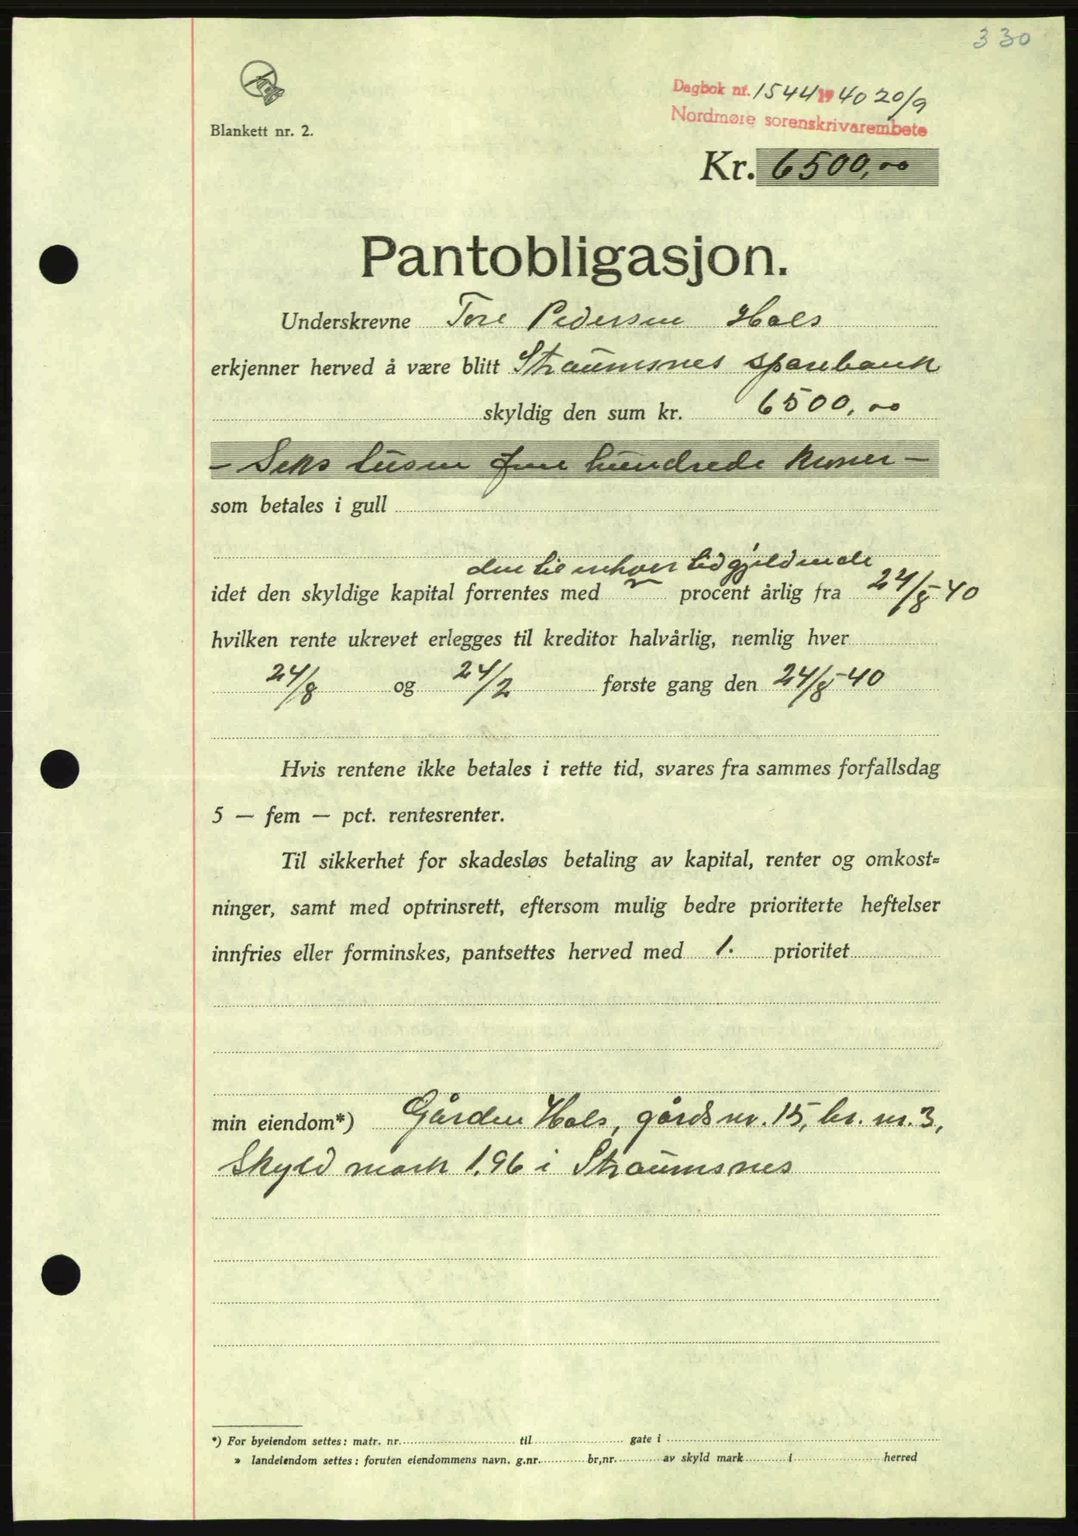 330
Dagbok nr. 1544 1940 20/9
Nordmøre sorenskrivarembete
Blankett nr. 2.
Kr. 6500,00
Pantobligasjon.
Underskrevne Tore Pedersen Hals
erkjenner herved å være blitt Straumsnes sparebank
skyldig den sum kr. 6500,00
- Seks tusen fem hundrede kroner -
som betales i gull
den til enhver tid gjeldende
idet den skyldige kapital forrentes med procent årlig fra 24/8-40
hvilken rente ukrevet erlegges til kreditor halvårlig, nemlig hver
24/8 og 24/2 første gang den 24/8-40
Hvis rentene ikke betales i rette tid, svares fra sammes forfallsdag
5 — fem — pct. rentesrenter.
Til sikkerhet for skadesløs betaling av kapital, renter og omkost=
ninger, samt med optrinsrett, eftersom mulig bedre prioriterte heftelser
innfries eller forminskes, pantsettes herved med 1. prioritet
min eiendom*) Gården Hals, gårdsnr. 15, br. nr. 3,
Skyld mark 1,96 i Straumsnes
*) For byeiendom settes: matr. nr. til gate i
» landeiendom settes: foruten eiendommens navn, g.nr. br,nr. av skyld mark i herred